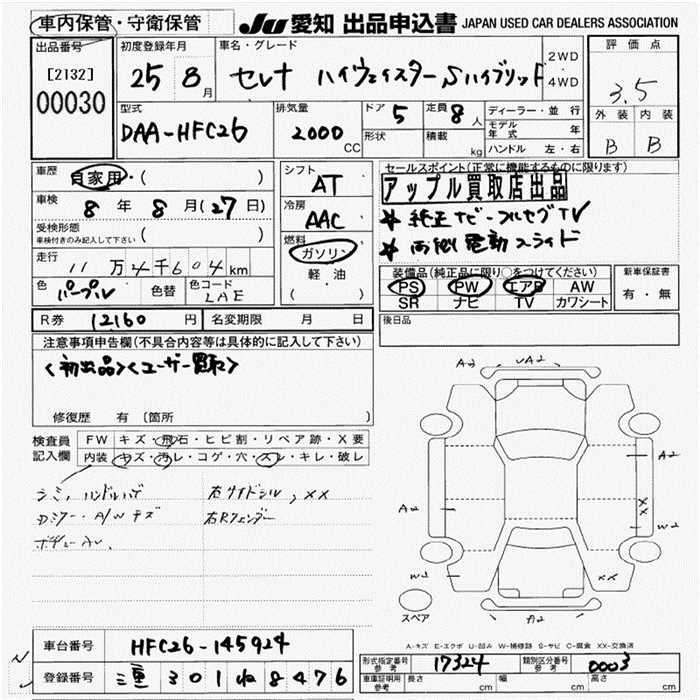 車内保管・守衛保管
JU 愛知 出品申込書 JAPAN USED CAR DEALERS ASSOCIATION
出品番号
[2132]
00030
初度登録年月
25 8月
車名・グレード
セレナ ハイウェイスターSハイブリッド
2WD
・
4WD
評価点
3.5
外装 内装
B B
型式
DAA-HFC26
排気量
2000
CC
ドア 5
定員 8人
形状
積載 kg
ディーラー・並行
モデル年式 年
ハンドル 左・右
車歴
自家用・( )
車検
8年8月(27日)
受検形態
車検付きのみ記入して下さい ( )
走行
11万4千604km
色
パープル
色替
色コード
LAE
シフト
AT
冷房
AAC
燃料
ガソリン・
軽・油
( )
セールスポイント(正常に機能するものに限ります)
アップル買取店出品
* 純正ナビ-フルセグTV
* 両側電動スライド
装備品(純正品に限り○をつけてください)
PS PW エアB AW
SR ナビ TV カワシート
新車保証書
有・無
R券 12160円
名変期限 月 日
後日品
注意事項申告欄(不具合内容等は具体的に記入して下さい)
<初出品><ユーザー買取>
修復歴 有 〔箇所 〕
検査員記入欄
FW キズ・飛石・ヒビ割・リペア跡・X要
内装 キズ・汚レ・コゲ・穴・スレ・キレ・破レ
シミ、ハンドルハゲ
右サイドシル, XX
Dミラー・A/Wキズ
右Rフェンダー
A2
A2
A2
A2
XX
W2
W2
XX
A2
スペア
A-キズ E-エクボ U-凹み W-補修跡 S-サビ C-腐食 XX-交換済
車台番号 HFC26-145924
登録番号 三重 301 ね 8476
形式指定番号
参考
17324
類別区分番号
参考
0003
車庫証明用
参考
長さ cm
幅 cm
高さ cm